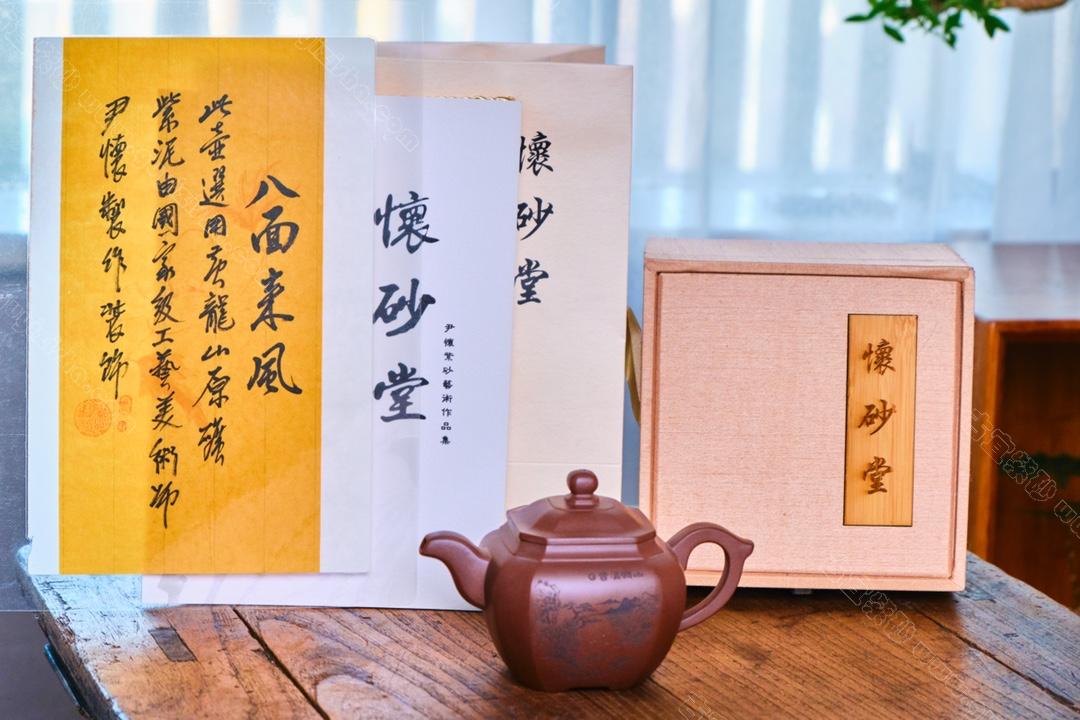 八面来風
此壺選用黃龍山原礦
紫泥由國家級工藝美術師
尹懷製作裝飾
懷砂堂
尹懷紫砂藝術作品集
懷砂堂
懷砂堂